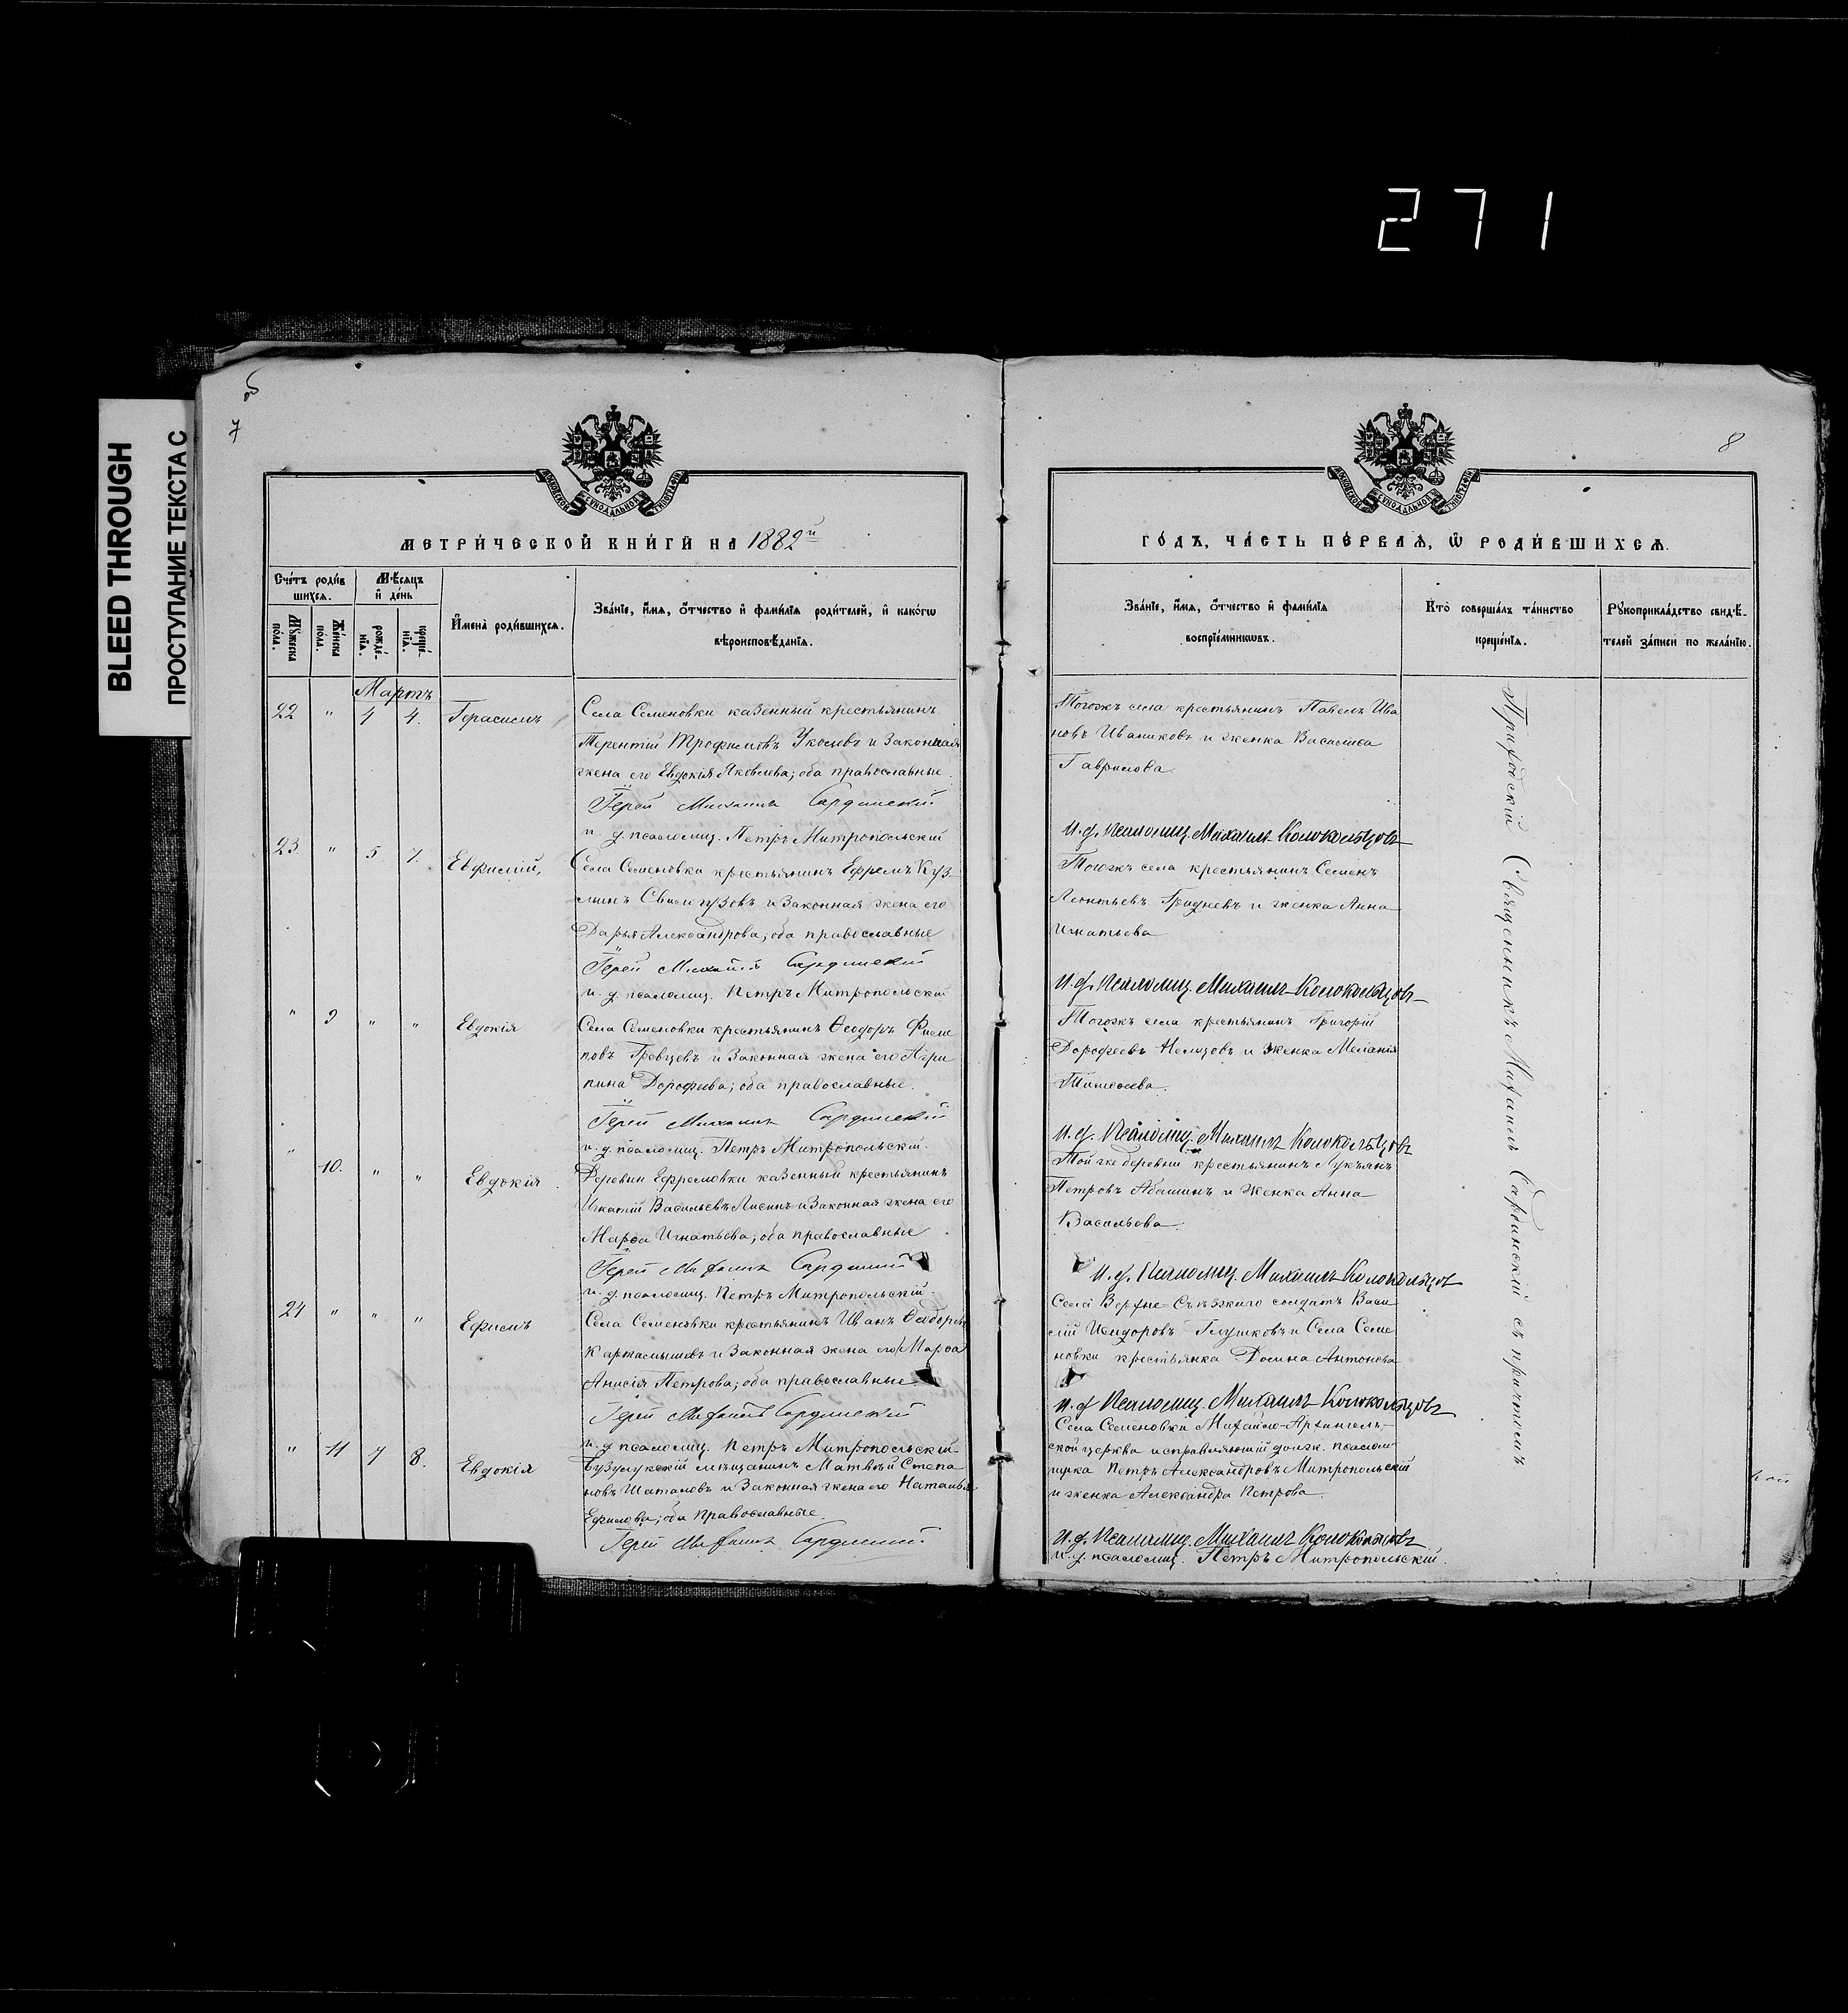 271
BLEED THROUGH
ПРОСТУПАНИЕ ТЕКСТА С
об
7
8
МОСКОВСКОЙ СѴНОДАЛЬНОЙ ТИПОГРАФІИ
МЕТРИ́ЧЕСКОЙ КНИ́ГИ НА 1882й
Сче́тъ роди́в
шихсѧ.
Мѣ́сѧцъ
и҆ де́нь
Мꙋ́жеска
по́ла.
Же́нска
пола.
рожде́-
нїѧ.
креще́-
нїѧ.
И҆мена̀ роди́вшихсѧ.
Зва́нїе, и҆́мѧ, ѻ҆́тчество и҆ фами́лїѧ роди́телей, и҆ како́гѡ
вѣроисповѣ́данїѧ.
Мартъ
22 " 4 4. Герасимъ
Села Семеновки казенный крестьянинъ
Терентій Трофимовъ Укосовъ и законная
жена его Евдокія Яковлева; оба православные.
Іерей Михаилъ Сардинскій
и. д. псаломщ. Петръ Митропольскій
23 " 5 7. Евфимій,
Села Семеновки крестьянинъ Ефремъ Куз
минъ и законная жена его
Дарья Александрова; оба православные
Іерей Михаилъ Сардинскій
и. д. псаломщ. Петръ Митропольскій
" 9 " " Евдокія
Села Семеновки крестьянинъ Ѳеодоръ Филип
повъ Гревцевъ и законная жена его Агри
пина Дорофеева; оба православные.
Іерей Михаилъ Сардинскій
и. д. псаломщ. Петръ Митропольскій.
" 10. " " Евдокія
Деревни Ефремовки казенный крестьянинъ
Игнатій Васильевъ Лисинъ и законная жена его
Марѳа Игнатьева; оба православные
Іерей Михаилъ Сардинскій
и. д. псаломщ. Петръ Митропольскій.
24 " " " Ефимъ
Села Семеновки крестьянинъ Иванъ Ѳедоровъ
Картамышевъ и законная жена его Марѳа
Анисія Петрова; оба православные
Іерей Михаилъ Сардинскій
и. д. псаломщ. Петръ Митропольскій.
" 11 7 8. Евдокія
Бузулукскій мѣщанинъ Матвѣй Степа
новъ Шаталовъ и законная жена его Наталья
Ефимова; оба православные.
Іерей Михаилъ Сардинскій
МОСКОВСКОЙ СѴНОДАЛЬНОЙ ТИПОГРАФІИ
ГО́ДЪ, ЧА́СТЬ ПЕ́РВАѦ, Ѡ҆ РОДИ́ВШИХСѦ.
Зва́нїе, и҆́мѧ, ѻ҆́тчество и҆ фами́лїѧ
воспрїе́мникѡвъ.
Кто̀ соверша́лъ та́инство
креще́нїѧ.
Рꙋкоприкла́дство свидѣ́-
телей за́писи по жела́нїю.
Тогожъ села крестьянинъ Павелъ Ива
новъ Иванковъ и женка Василиса
Гаврилова.
И. д. Псаломщ. Михаилъ Колокольцовъ
Тогожъ села крестьянинъ Семенъ
Леонтьевъ Гридневъ и женка Анна
Игнатьева
И. д. Псаломщ. Михаилъ Колокольцовъ
Тогожъ села крестьянинъ Григорій
Дорофеевъ Немцовъ и женка Меланія
Тимофеева.
И. д. Псаломщ. Михаилъ Колокольцовъ
Той же деревни крестьянинъ Лукьянъ
Петровъ Абашинъ и женка Анна
Васильева.
И. д. Псаломщ. Михаилъ Колокольцовъ
Села Верхне-Съѣзжаго солдатъ Васи
лій Исидоровъ Глушковъ и Села Семе
новки крестьянка Домна Антонова
И. д. Псаломщ. Михаилъ Колокольцовъ
Села Семеновки Михайло-Архангель-
ской церкви исправляющій долж. псалом
щика Петръ Александровъ Митропольскій
и женка Александра Петрова.
И. д. Псаломщ. Михаилъ Колокольцовъ
и. д. псаломщ. Петръ Митропольскій.
Приходскій Священникъ Михаилъ Сардинскій съ причтомъ